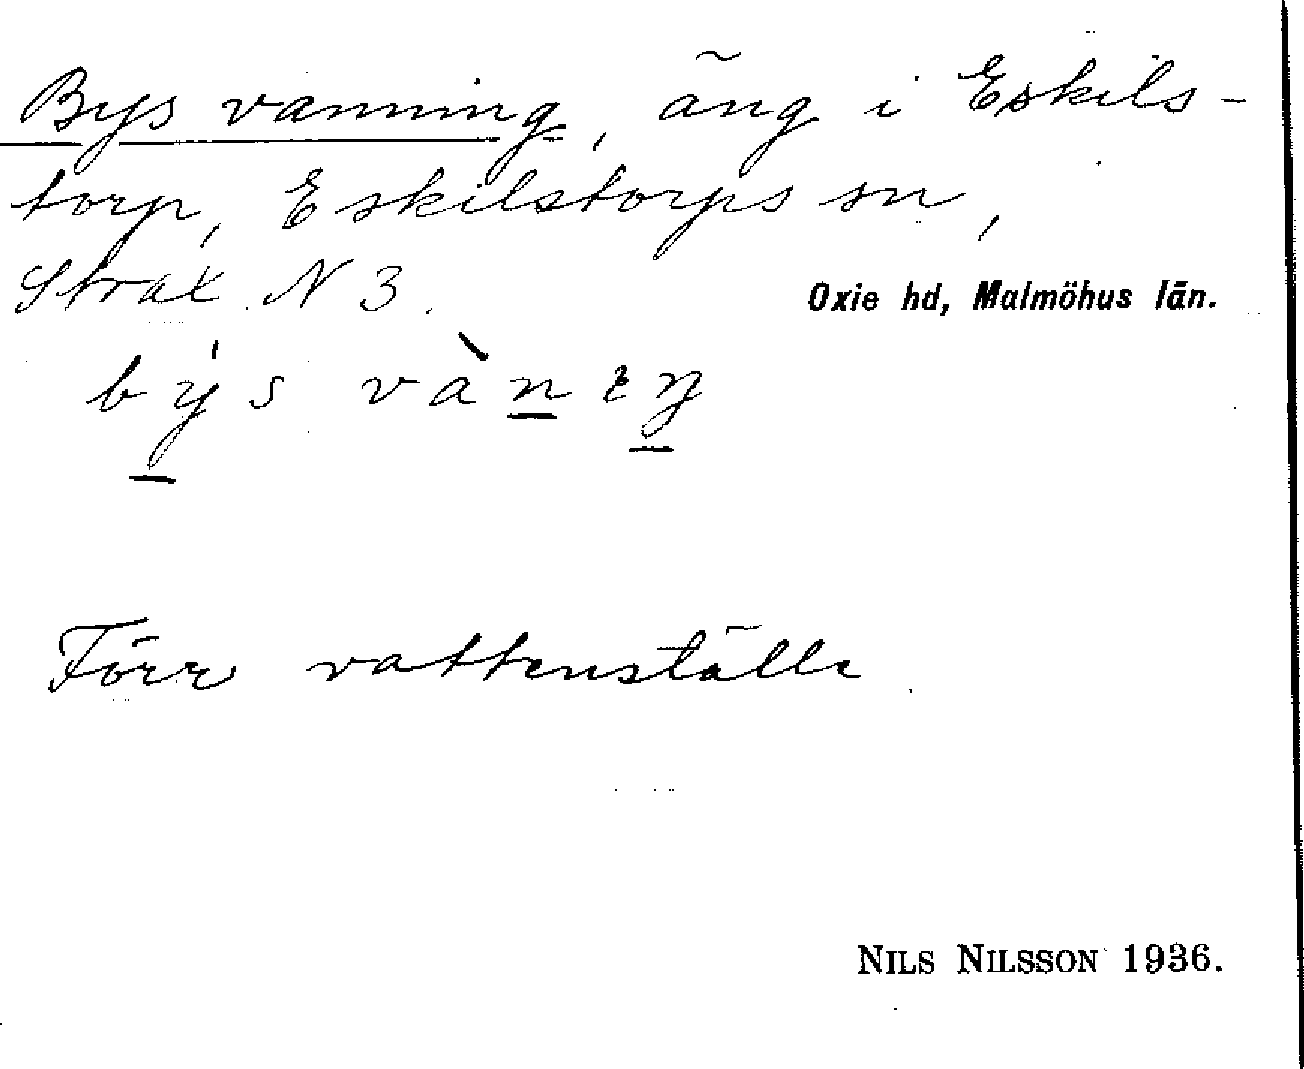 Bys vanning, äng i Eskils-
torp, Eskilstorps sn,
Strax N 3.
Oxie hd, Malmöhus län.
Förr vattenställe
NILS NILSSON 1936.